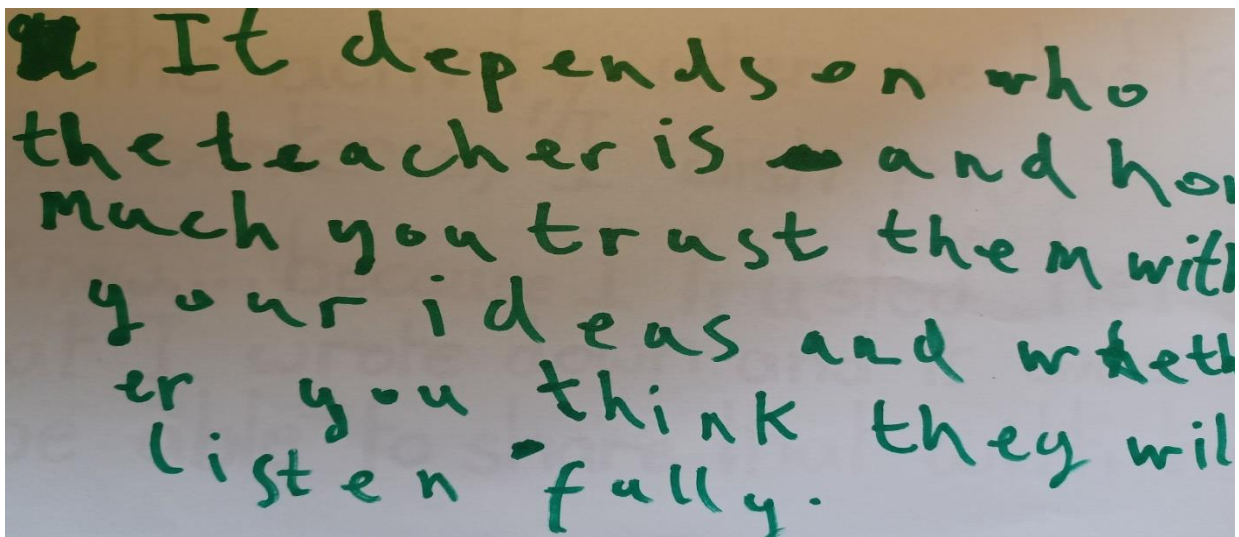 It depends on who
the teacher is and how
much you trust them with
your ideas and wheth
er you think they will
listen fully.